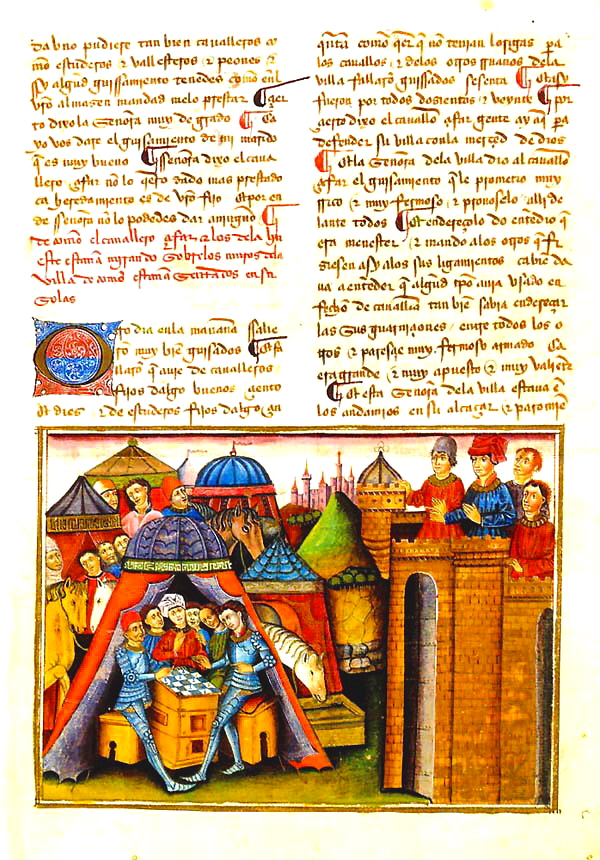 da vno pudiese tan bien caualleros co
mo escuderos & vallesteros & peones &
sy algund guissamiento tenedes como en el
vro almazen mandad melo prestar
to dixo la señora muy de grado ¶ Ca
yo vos dare el guisamiento de mi marido
q̃ es muy bueno ¶ Señora dixo el caua
llero zifar nõ lo q̃ero dado mas prestado
ca heredamiento es de vro fijo & por en
de señora nõ lo podedes dar a ninguno ¶
De commo el cauallero zifar & los dela hu
este estauan mirando sobre los muros dela
villa de commo estauan sentados en su
solas
Otro dia en la mañana salie
ro muy biẽ guisados
llaro q̃ auie de caualleros
fijos dalgo buenos çiento
& dies & de escuderos fijos dalgo
q̃nta como q̃er q̃ nõ tenian lorigas pa
los cauallos & delos otros ruanos dela
villa fallaro guissados sesenta ¶ & assy
fueron por todos dosientos & veynte ¶ Por
çierto dixo el cauallo zifar gente ay aq̃ pa
defender su villa con la merçed de dios
¶ & la señora dela villa dio al cauallo
zifar el guisamiento q̃ le prometio muy
rrico & muy fermoso & prouoselo alli de
lante todos ¶ & endereçolo do entẽdio q̃
era menester & mando alos otros q̃ fi
siesen asy alos sus ligamientos
ua a entender q̃ algud tpo auia vsado en
fecho de caualla tan biẽ sabia endereçar
las sus guarniçones entre todos los o
tros & paresçie muy fermoso armado
era grande & muy apuesto & muy valiẽte
¶ & esta señora dela villa estaua ẽ
los andamios en su alcaçar & paro miẽ